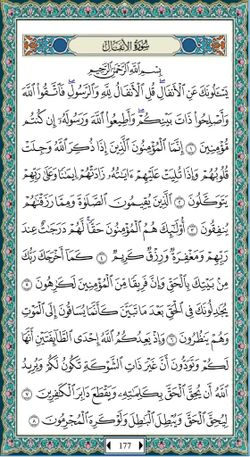 سُورَةُ الأَنفَالِ
بِسْمِ اللَّهِ الرَّحْمَٰنِ الرَّحِيمِ
يَسْـَٔلُونَكَ عَنِ ٱلْأَنفَالِ ۖ قُلِ ٱلْأَنفَالُ لِلَّهِ وَٱلرَّسُولِ ۖ فَٱتَّقُوا۟ ٱللَّهَ
وَأَصْلِحُوا۟ ذَاتَ بَيْنِكُمْ ۖ وَأَطِيعُوا۟ ٱللَّهَ وَرَسُولَهُۥٓ إِن كُنتُم
مُّؤْمِنِينَ ١ إِنَّمَا ٱلْمُؤْمِنُونَ ٱلَّذِينَ إِذَا ذُكِرَ ٱللَّهُ وَجِلَتْ
قُلُوبُهُمْ وَإِذَا تُلِيَتْ عَلَيْهِمْ ءَايَٰتُهُۥ زَادَتْهُمْ إِيمَٰنًا وَعَلَىٰ رَبِّهِمْ
يَتَوَكَّلُونَ ٢ ٱلَّذِينَ يُقِيمُونَ ٱلصَّلَوٰةَ وَمِمَّا رَزَقْنَٰهُمْ
يُنفِقُونَ ٣ أُو۟لَٰٓئِكَ هُمُ ٱلْمُؤْمِنُونَ حَقًّا ۚ لَّهُمْ دَرَجَٰتٌ عِندَ
رَبِّهِمْ وَمَغْفِرَةٌ وَرِزْقٌ كَرِيمٌ ٤ كَمَآ أَخْرَجَكَ رَبُّكَ
مِنۢ بَيْتِكَ بِٱلْحَقِّ وَإِنَّ فَرِيقًا مِّنَ ٱلْمُؤْمِنِينَ لَكَٰرِهُونَ ٥
يُجَٰدِلُونَكَ فِى ٱلْحَقِّ بَعْدَ مَا تَبَيَّنَ كَأَنَّمَا يُسَاقُونَ إِلَى ٱلْمَوْتِ
وَهُمْ يَنظُرُونَ ٦ وَإِذْ يَعِدُكُمُ ٱللَّهُ إِحْدَى ٱلطَّآئِفَتَيْنِ أَنَّهَا
لَكُمْ وَتَوَدُّونَ أَنَّ غَيْرَ ذَاتِ ٱلشَّوْكَةِ تَكُونُ لَكُمْ وَيُرِيدُ
ٱللَّهُ أَن يُحِقَّ ٱلْحَقَّ بِكَلِمَٰتِهِۦ وَيَقْطَعَ دَابِرَ ٱلْكَٰفِرِينَ ٧
لِيُحِقَّ ٱلْحَقَّ وَيُبْطِلَ ٱلْبَٰطِلَ وَلَوْ كَرِهَ ٱلْمُجْرِمُونَ ٨
177